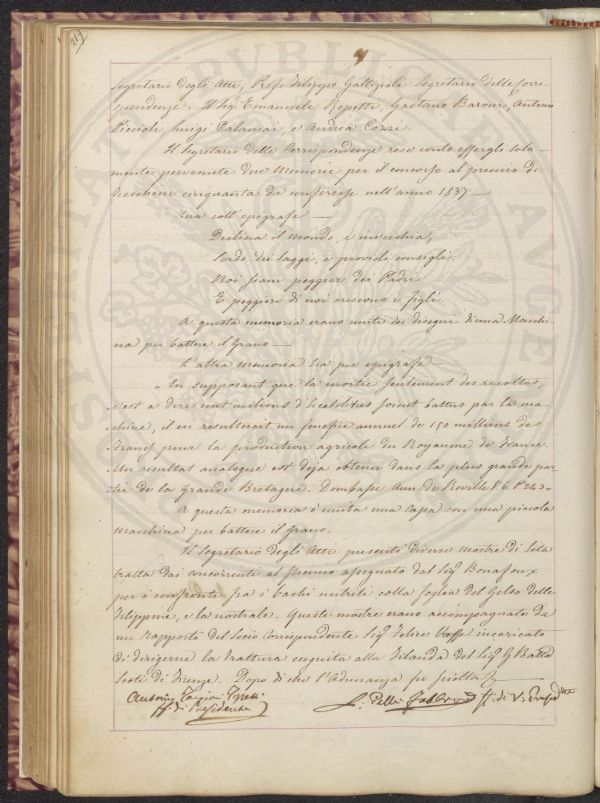 217
Segretario degli Atti, Prof. Filippo Gallizioli Segretario delle Corri-
spondenze. Il Sig. Emanuele Repetti, Gaetano Baroni, Antonio
Piccioli, Luigi Calamai, e Andrea Cozzi.
Il Segretario delle Corrispondenze rese conto essergli sola-
mente pervenute due Memorie per il concorso al premio di
Zecchini cinquanta da conferirsi nell'anno 1837 —
Una coll'epigrafe —
Declina il mondo, e invecchia,
Sordo dei Saggi, e providi consigli:
Noi siam peggior dei Padri
E peggiori di noi crescono i figli.
A questa memoria erano uniti dei disegni d'una Macchi-
na per battere il Grano —
L'altra memoria ha per epigrafe —
„ En supposant que la moitié seulement des recoltes,
„ c'est a dire cent milions d'hectolitres soient battus par la ma-
chine, il en resulterait un benefice annuel de 150 millions de
Francs pour la production agricole du Royaume de France.
Un resultat analogue est deja obtenu dans la plus grande par-
tie de la Grande Bretagne. Dombasle Ann. de Roville T. 6. P. 243 „
A questa memoria è unita una Cassa con una piccola
macchina per battere il Grano.
Il Segretario degli Atti presentò diverse mostre di Seta
tratta dai concorrenti al Premio assegnato dal Sig. Bonafoux
per i confronti fra i bachi nutriti colla foglia del Gelso delle
Filippine, e la nostrale. Queste mostre erano accompagnate da
un rapporto del Socio Corrispondente Sig. Felice incaricato
di dirigerne la trattura eseguita alla Filanda del Sig. G. Batta
Scoti di Firenze. Dopo di che l'Adunanza fu sciolta
Antonio Targioni Tozzetti
ff. di Presidente
L. Della ff. di V.